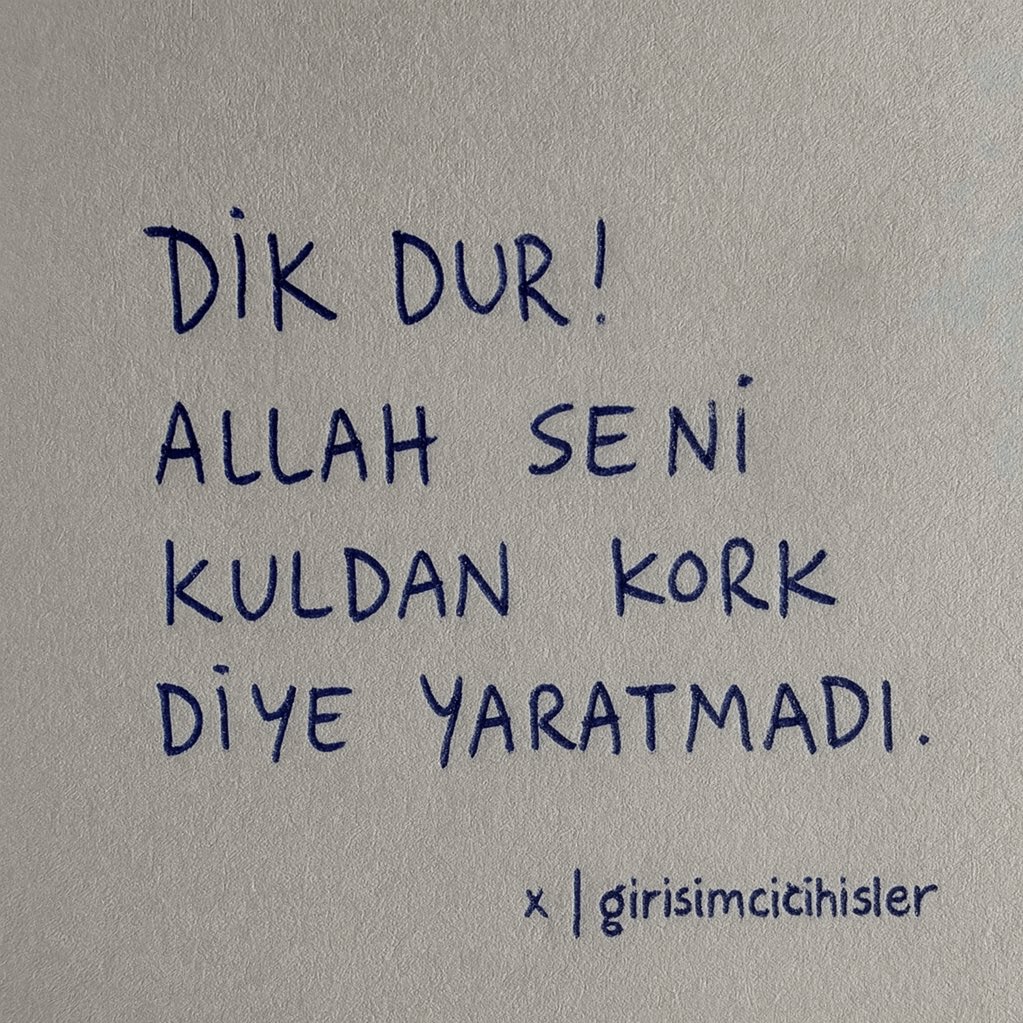 DİK DUR!
ALLAH SENİ
KULDAN KORK
DİYE YARATMADI.
x | girisimcicihisler